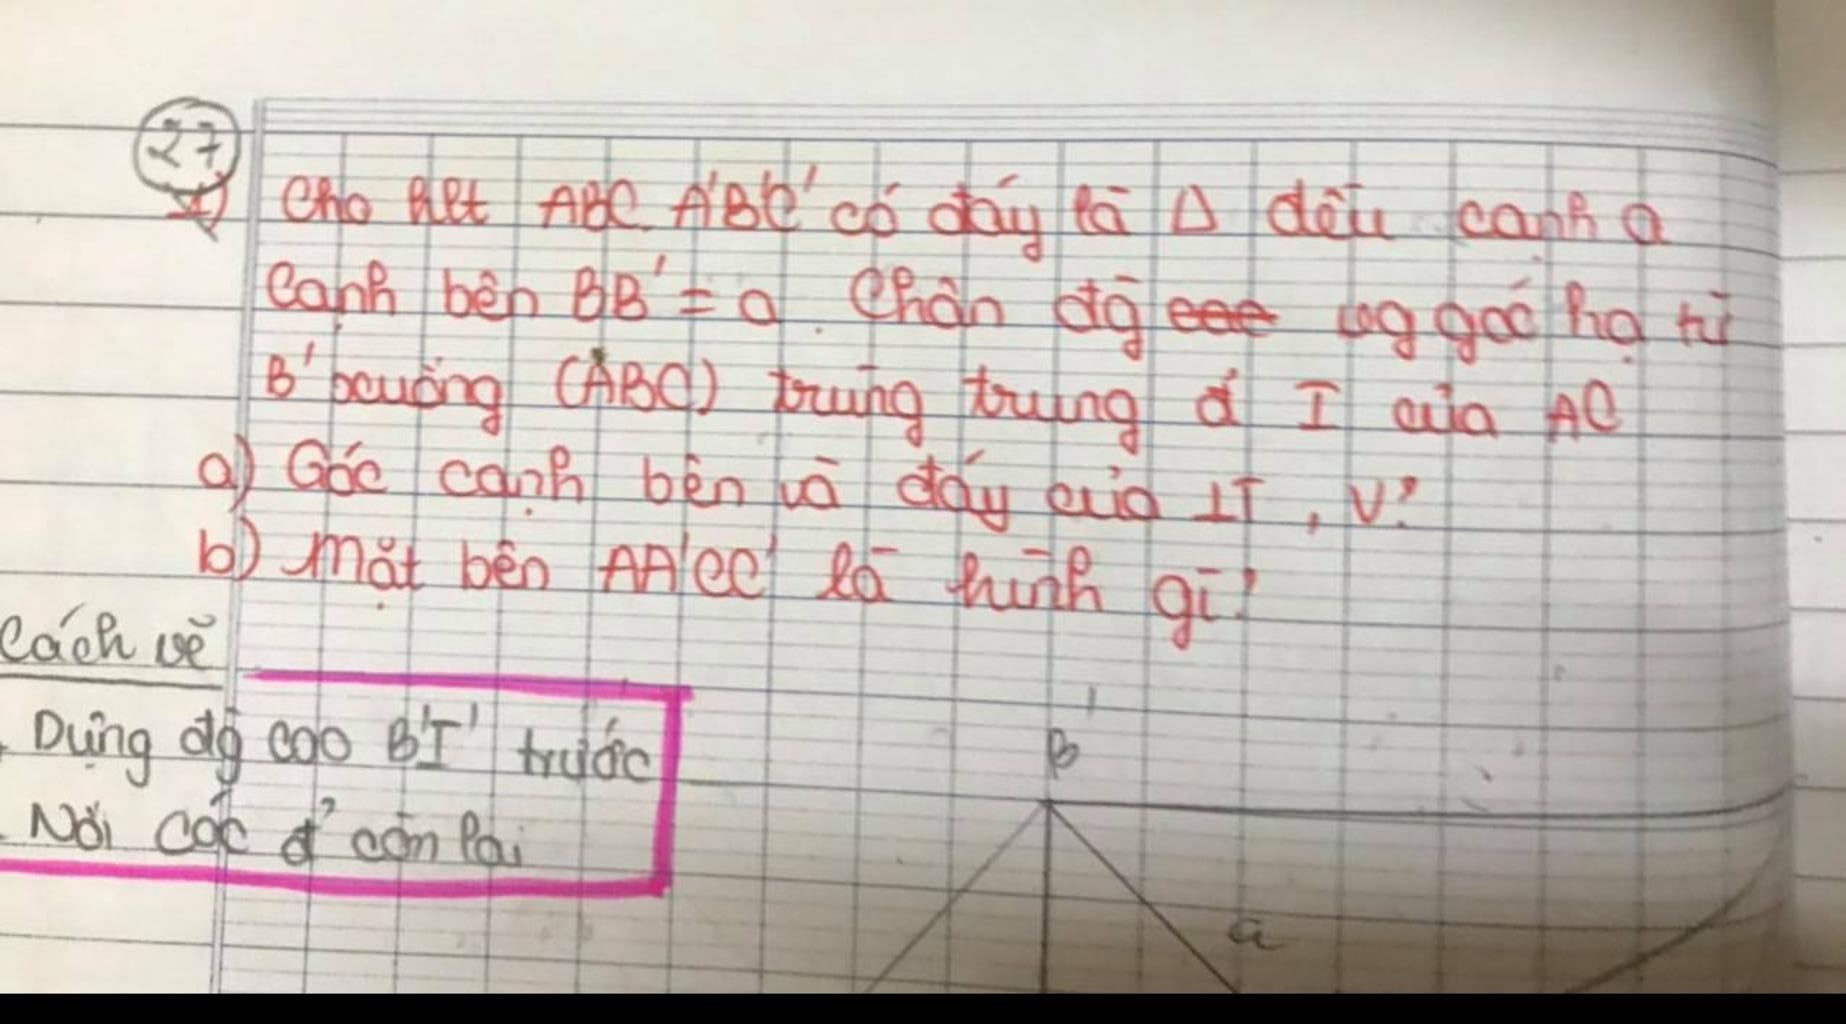 27
Cho hlt ABC A'B'C' có đáy là Δ đều cạnh a
Cạnh bên BB' = a. Chân đg vg góc hạ từ
B' xuống (ABC) trùng trung đ' I của AC
a) Góc cạnh bên và đáy của LT, V?
b) Mặt bên AA'CC' là hình gì?
Cách vẽ
Dựng đg cao B'I' trước
B'
Nối các đ' còn lại
a